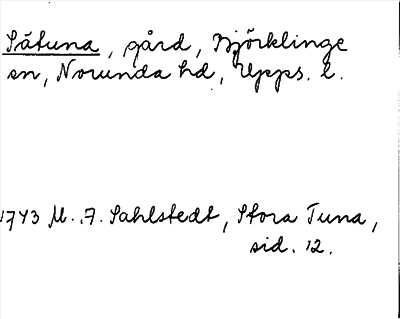 Sätuna, gård, Björklinge
sn, Norunda hd, Upps. l.
1743 M. F. Sahlstedt, Stora Tuna,
sid. 12.